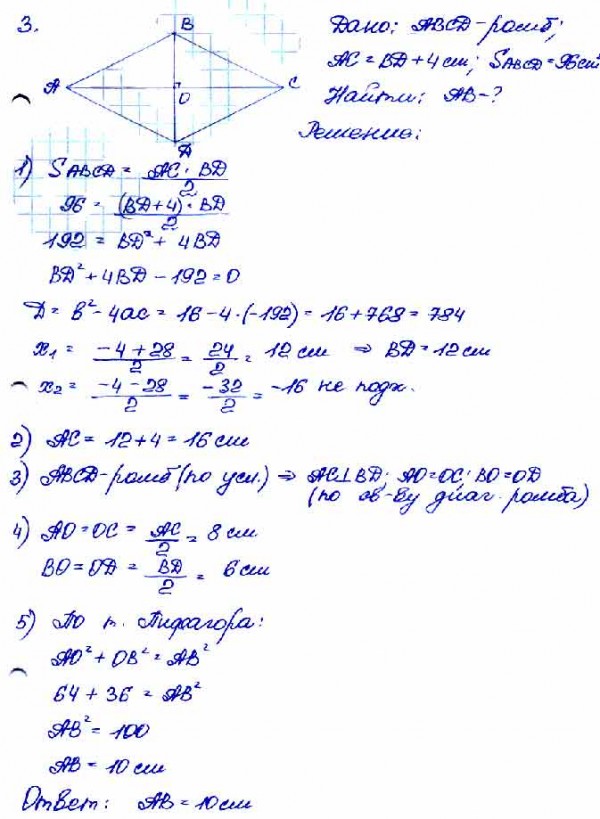 3.
B
A
O
C
D
Дано: ABCD-ромб;
AC = BD + 4 см; SABCD = 96 см²
Найти: AB-?
Решение:
1) SABCD = AC · BD / 2
96 = (BD+4) · BD / 2
192 = BD² + 4BD
BD² + 4BD - 192 = 0
D = b² - 4ac = 16 - 4 · (-192) = 16 + 768 = 784
x₁ = -4 + 28 / 2 = 24 / 2 = 12 см ⇒ BD = 12 см
x₂ = -4 - 28 / 2 = -32 / 2 = -16 не подх.
2) AC = 12 + 4 = 16 см
3) ABCD-ромб (по усл.) ⇒ AC⊥BD; AO=OC; BO=OD
(по св-ву диаг. ромба)
4) AO = OC = AC / 2 = 8 см
BO = OD = BD / 2 = 6 см
5) По т. Пифагора:
AO² + OB² = AB²
64 + 36 = AB²
AB² = 100
AB = 10 см
Ответ: AB = 10 см